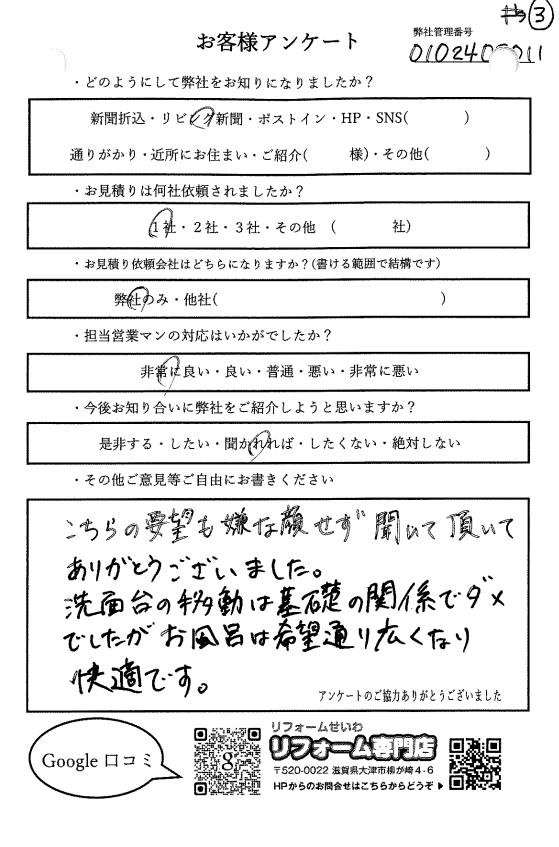 ③
お客様アンケート
弊社管理番号
・どのようにして弊社をお知りになりましたか？
新聞折込・リビング新聞・ポストイン・HP・SNS(　　　)
通りがかり・近所にお住まい・ご紹介(　　　様)・その他(　　　)
・お見積りは何社依頼されましたか？
1社・2社・3社・その他　(　　　社)
・お見積り依頼会社はどちらになりますか？(書ける範囲で結構です)
弊社のみ・他社(　　　)
・担当営業マンの対応はいかがでしたか？
非常に良い・良い・普通・悪い・非常に悪い
・今後お知り合いに弊社をご紹介しようと思いますか？
是非する・したい・聞かれれば・したくない・絶対しない
・その他ご意見等ご自由にお書きください
こちらの要望も嫌な顔せず聞いて頂いて
ありがとうございました。
洗面台の移動は基礎の関係でダメ
でしたがお風呂は希望通り広くなり
快適です。
アンケートのご協力ありがとうございました
Google 口コミ
g
リフォームせいわ
リフォーム専門店
〒520-0022 滋賀県大津市柳が崎4-6
HPからのお問合せはこちらからどうぞ▶